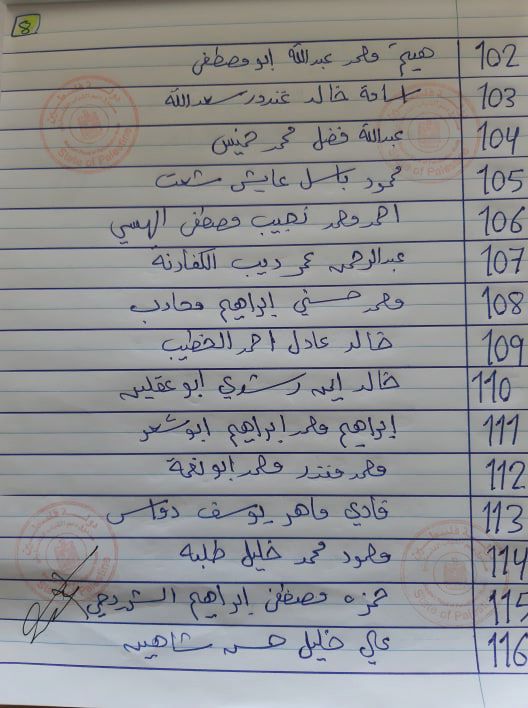 8
102 هيثم محمد عبدالله ابو مصطفى
103 اسامة خالد غندور سعدالله
104 عبدالله فضل محمد خميس
105 محمود باسل عايش شعت
106 احمد محمد نجيب مصطفى الهسي
107 عبدالرحمن عمر ديب الكفارنة
108 محمد حسني إبراهيم محارب
109 خالد عادل احمد الخطيب
110 خالد ايمن رشدي ابو عقلين
111 إبراهيم محمد ابراهيم ابو شعر
112 محمد منذر محمد ابو نعمة
113 فادي ماهر يوسف دواس
114 محمود محمد خليل طلبه
115 حمزه مصطفى إبراهيم الشوردحي
116 علي خليل حسن شاهين
State of Palestine
State of Palestine
State of Palestine
State of Palestine